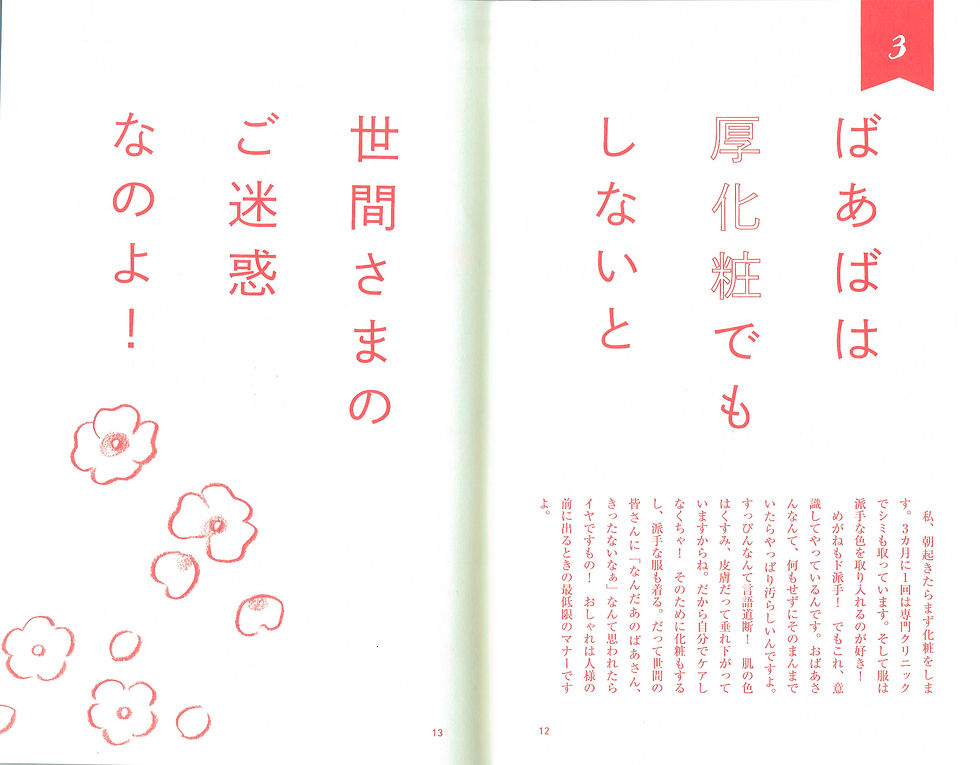 3
ばあばは
厚化粧でも
しないと
世間さまの
ご迷惑
なのよ！
私、朝起きたらまず化粧をしま
す。3カ月に1回は専門クリニック
でシミも取っています。そして服は
派手な色を取り入れるのが好き！
めがねもド派手！　でもこれ、意
識してやっているんです。おばあさ
んなんて、何もせずにそのまんまで
いたらやっぱり汚らしいんですよ。
すっぴんなんて言語道断！　肌の色
はくすみ、皮膚だって垂れ下がって
いますからね。だから自分でケアし
なくちゃ！　そのために化粧もする
し、派手な服も着る。だって世間の
皆さんに「なんだあのばあさん、
きったないなぁ」なんて思われたら
イヤですもの！　おしゃれは人様の
前に出るときの最低限のマナーです
よ。
12
13